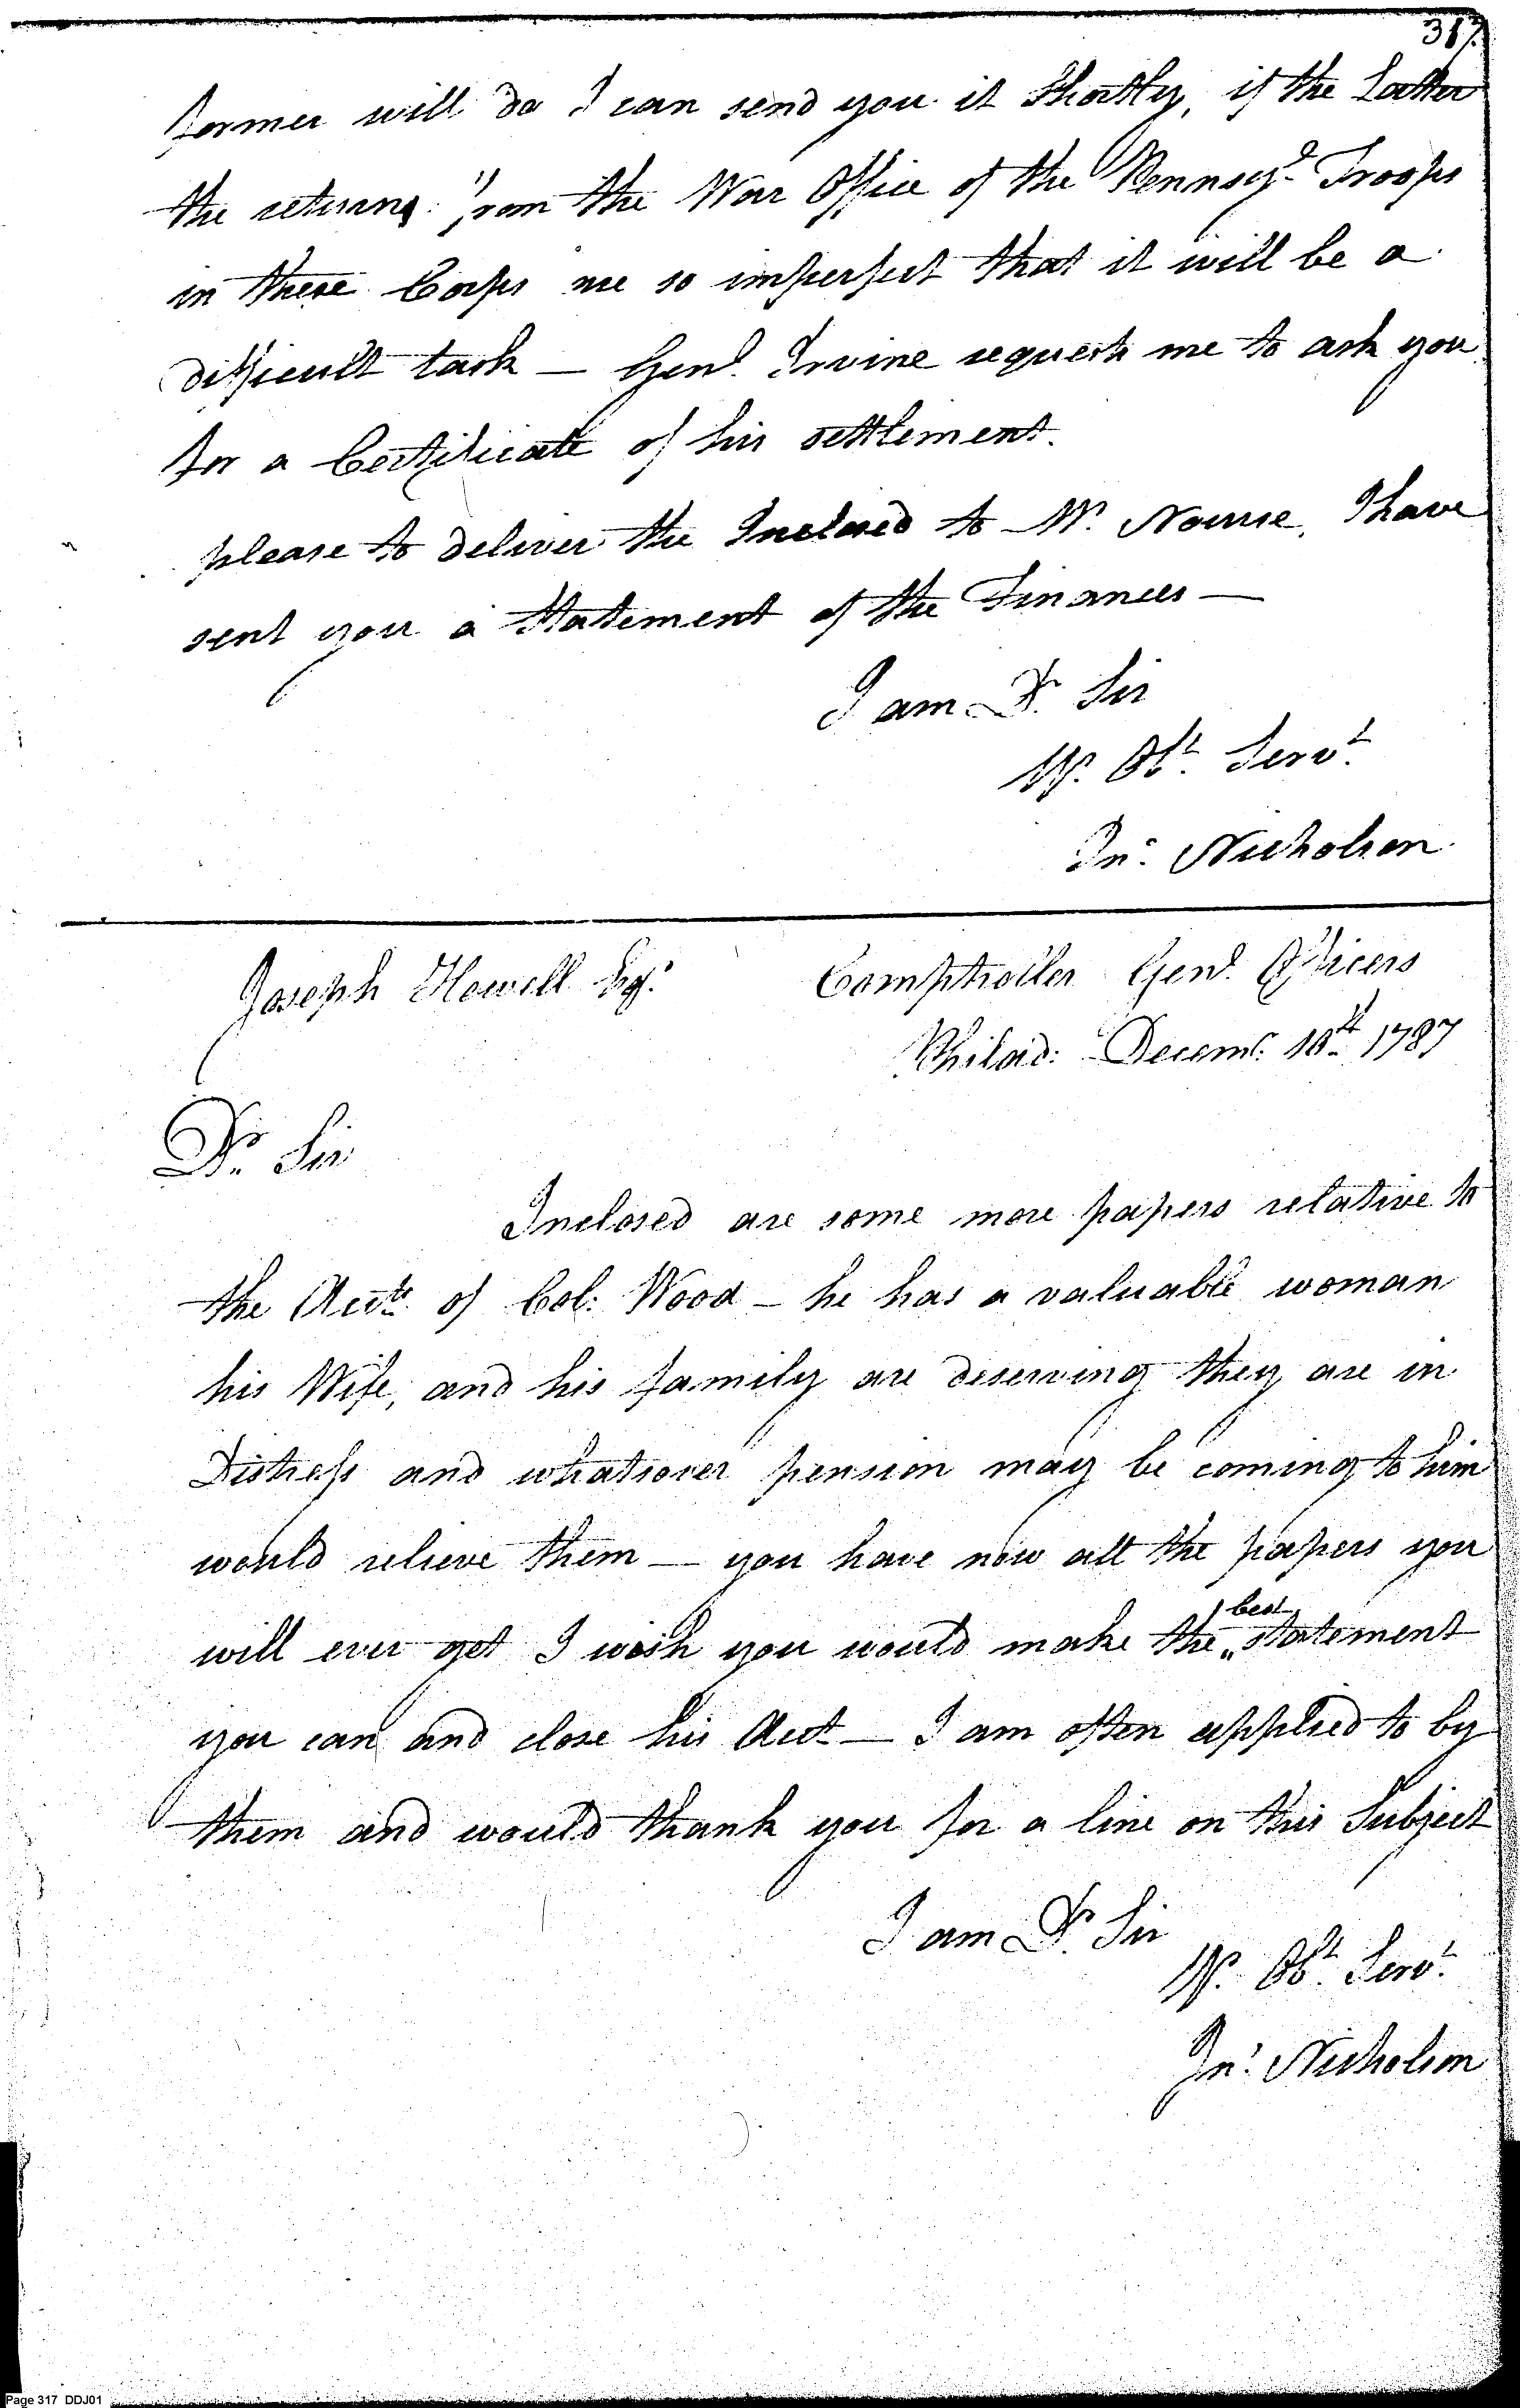 317.
former will do I can send you it Shortly, if the Latter
the returns from the War Office of the Pennsya. Troops
in these Corps are so imperfect that it will be a
difficult task — Genl. Irvine requests me to ask you
for a Certificate of his settlement.
please to deliver the Inclosed to Mr. Nourse, I have
sent you a Statement of the Finances —
I am Dr. Sir
Yr. Obt. Servt.
Jno. Nicholson
Joseph Howell Esqr. Comptroller Genl. Officers
Philad: Decemr. 18th 1787
Dr. Sir
Inclosed are some more papers relative to
the Accts. of Col: Wood — he has a valuable woman
his Wife, and his family are deserving they are in
Distress and whatsover pension may be coming to him
would relieve them — you have now all the papers you
will ever get I wish you would make the best statement
you can and close his Acct — I am often applied to by
them and would thank you for a line on this Subject
I am Dr. Sir
Yr. Obt. Servt.
Jno. Nicholson
Page 317 DDJ01